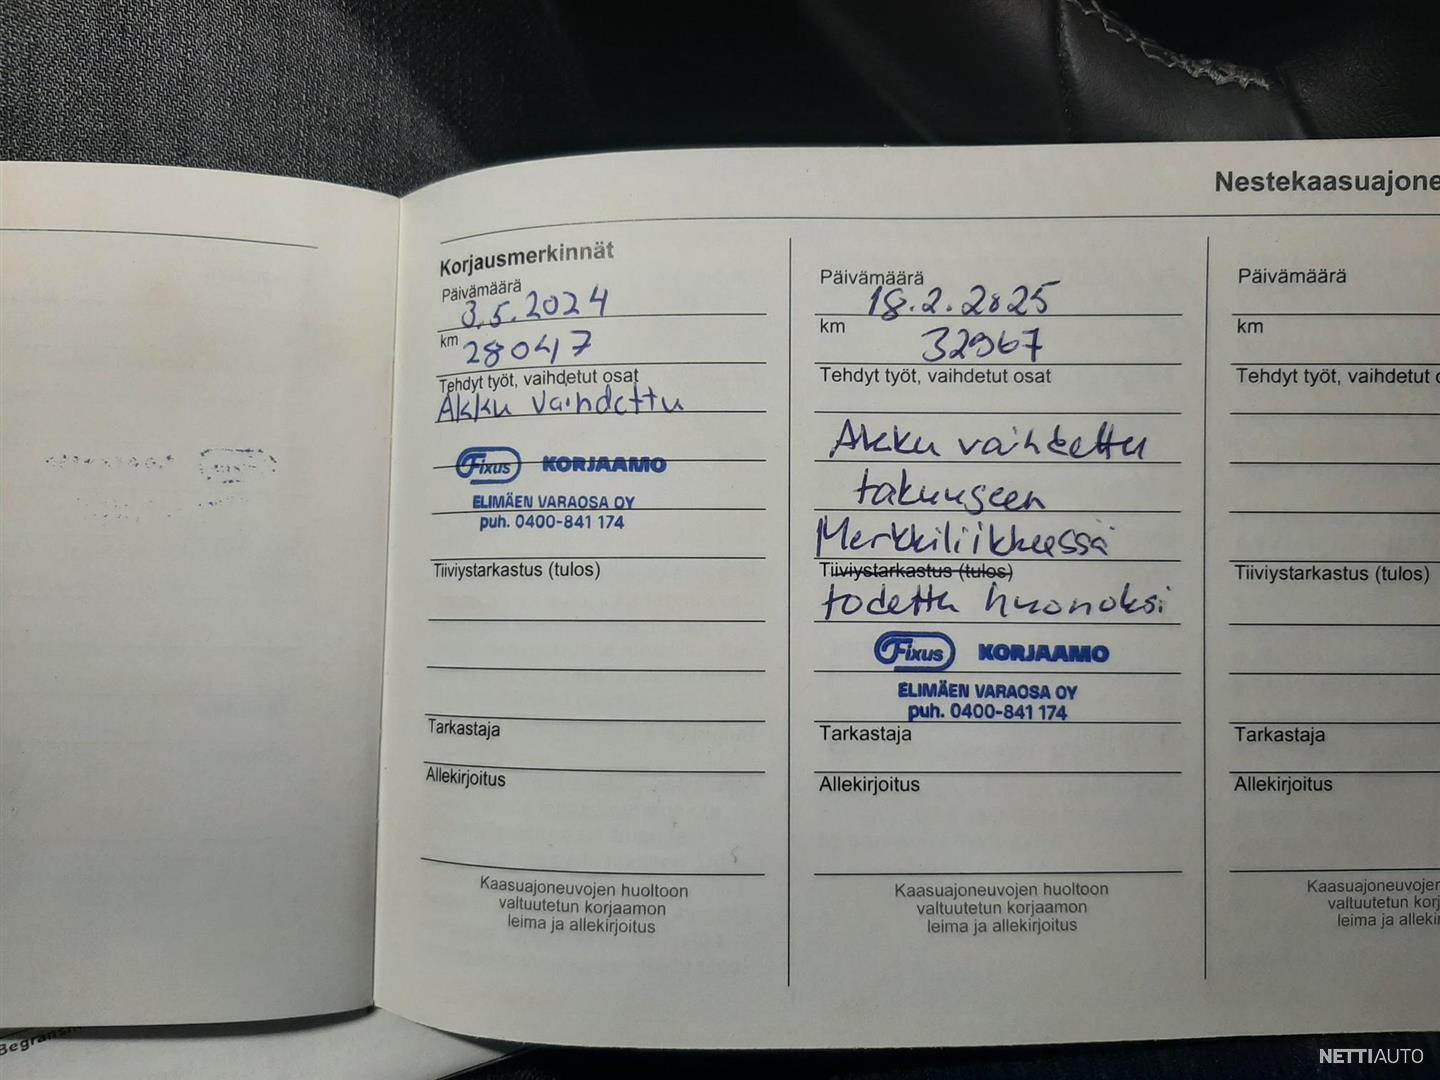 Nestekaasuajone
Korjausmerkinnät
Päivämäärä
3.5.2024
km
28047
Tehdyt työt, vaihdetut osat
Akku vaihdettu
Fixus KORJAAMO
ELIMÄEN VARAOSA OY
puh. 0400-841 174
Tiiviystarkastus (tulos)
Tarkastaja
Allekirjoitus
Kaasuajoneuvojen huoltoon
valtuutetun korjaamon
leima ja allekirjoitus
Päivämäärä
18.2.2025
km
32967
Tehdyt työt, vaihdetut osat
Akku vaihdettu
takuuseen
Merkkiliikkeessä
Tiiviystarkastus (tulos)
todettu huonoksi
Fixus KORJAAMO
ELIMÄEN VARAOSA OY
puh. 0400-841 174
Tarkastaja
Allekirjoitus
Kaasuajoneuvojen huoltoon
valtuutetun korjaamon
leima ja allekirjoitus
Päivämäärä
km
Tehdyt työt, vaihdetut
Tiiviystarkastus (tulos)
Tarkastaja
Allekirjoitus
Kaasuajoneuvojen
valtuutetun korj
leima ja allekir
NETTIAUTO